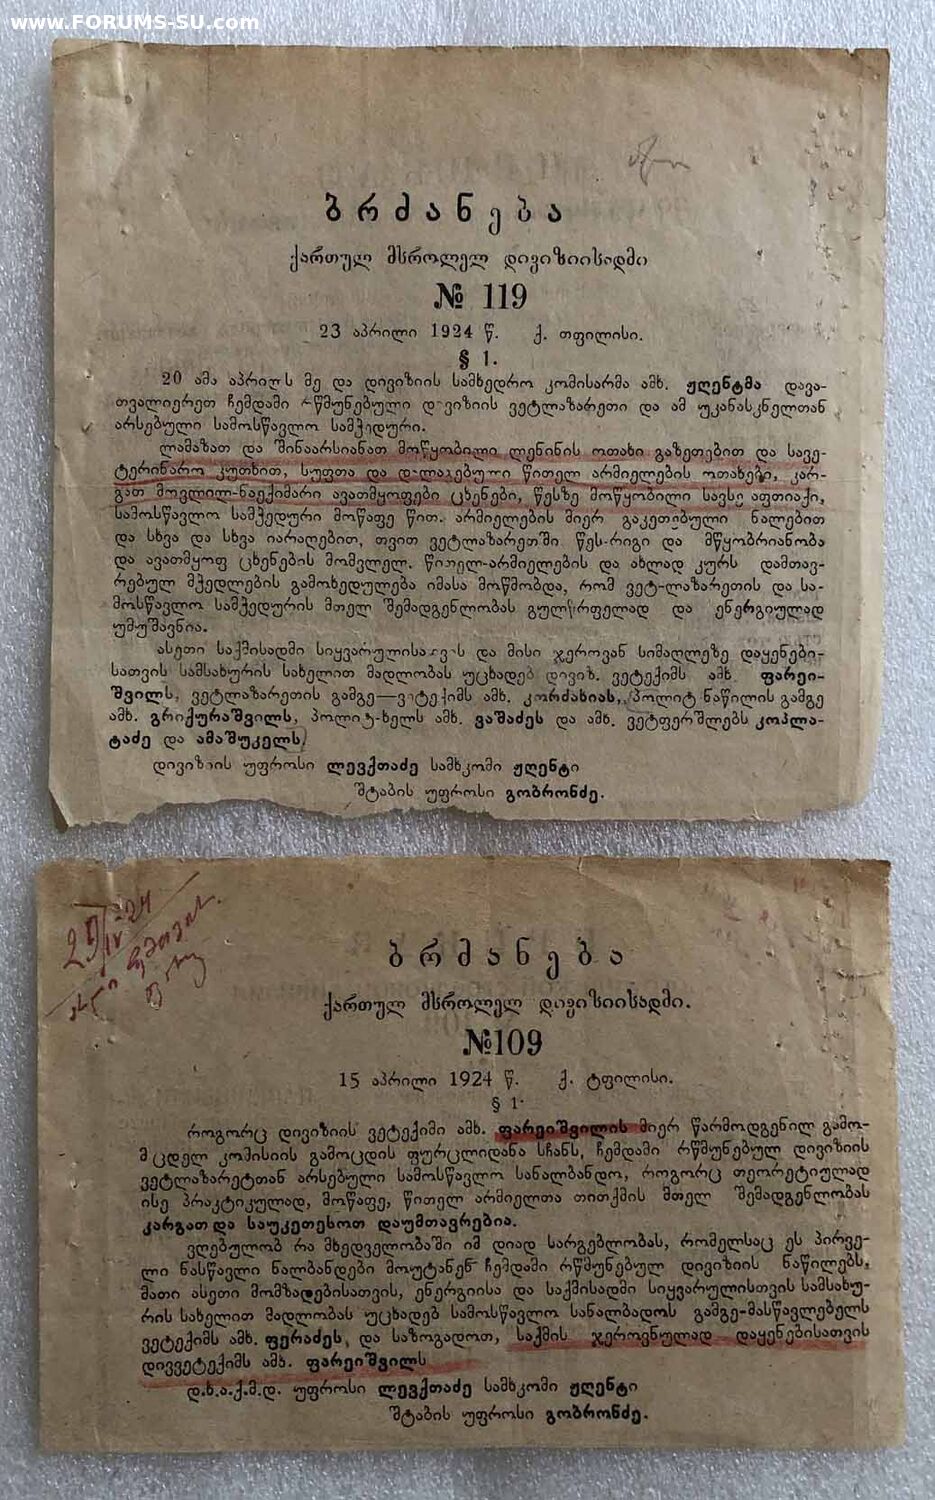 www.FORUMS-SU.com
ბრძანება
ქართულ მსროლელ დივიზიისადმი
№ 119
23 აპრილი 1924 წ. ქ. თფილისი.
§ 1.
20 ამა აპრილს მე და დივიზიის სამხედრო კომისარმა ამხ. ჟღენტმა დავა-
თვალიერეთ ჩემდამი რწმუნებული დივიზიის ვეტლაზარეთი და ამ უკანასკნელთან
არსებული სამოსწავლო სამჭედური.
ლამაზათ და შინაარსიანათ მოწყობილი ლენინის ოთახი გაზეთებით და სავე-
ტერინარო კუთხით, სუფთა და დალაგებული წითელ არმიელების ოთახები, კარ-
გათ მოვლილ-ნაექიმარი ავათმყოფები ცხენები, წესზე მოწყობილი სავსე აფთიაქი,
სამოსწავლო სამჭედური მოწაფე წით. არმიელების მიერ გაკეთებული ნალებით
და სხვა და სხვა იარაღებით, თვით ვეტლაზარეთში წეს-რიგი და მწყობრიანობა
და ავათმყოფ ცხენების მომვლელ. წითელ-არმიელების და ახლად კურს დამთავ-
რებულ მჭედლების გამოხედულება იმასა მოწმობდა, რომ ვეტ-ლაზარეთის და სა-
მოსწავლო სამჭედურის მთელ შემადგენლობას გულსრფელად და ენერგიულად
უმუშავნია.
ასეთი საქმისადმი სიყვარულისათვის და მისი ჯეროვან სიმაღლეზე დაყენები-
სათვის სამსახურის სახელით მადლობას უცხადებ დივიზ. ვეტექიმს ამხ. ფარეი-
შვილს, ვეტლაზარეთის გამგე—ვეტექიმს ამხ. კორძახიას, პოლიტ ნაწილის გამგე
ამხ. გრიქურაშვილს, პოლიტ-ხელს ამხ. ვაშაძეს და ამხ. ვეტფერშლებს კოპლა-
ტაძე და ამაშუკელს
დივიზიის უფროსი ლევქთაძე სამხკომი ჟღენტი
შტაბის უფროსი გობრონძე.
ბრძანება
ქართულ მსროლელ დივიზიისადმი.
№109
15 აპრილი 1924 წ. ქ. ტფილისი.
§ 1
როგორც დივიზიის ვეტექიმი ამხ. ფარეიშვილის მიერ წარმოდგენილ გამო-
მცდელ კომისიის გამოცდის ფურცლიდანა სჩანს, ჩემდამი რწმუნებულ დივიზიის
ვეტლაზარეტთან არსებული სამოსწავლო სანალბანდო, როგორც თეორეტიულად
ისე პრაკტიკულად, მოწაფე, წითელ არმიელთა თითქმის მთელ შემადგენლობას
კარგათ და საუკეთესოთ დაუმთავრებია.
ვღებულობ რა მხედველობაში იმ დიად სარგებლობას, რომელსაც ეს პირვე-
ლი ნასწავლი ნალბანდები მოუტანენ ჩემდამი რწმუნებულ დივიზიის ნაწილებს,
მათი ასეთი მომზადებისათვის, ენერგიისა და საქმისადმი სიყვარულისთვის სამსახუ-
რის სახელით მადლობას უცხადებ სამოსწავლო სანალბადოს გამგე-მასწავლებელს
ვეტექიმს ამხ. ფერაძეს, და საზოგადოთ, საქმის ჯეროვნულად დაყენებისათვის
დივვეტექიმს ამხ. ფარეიშვილს
დ.ს.ა.ქ.მ.დ. უფროსი ლევქთაძე სამხკომი ჟღენტი
შტაბის უფროსი გობრონძე.